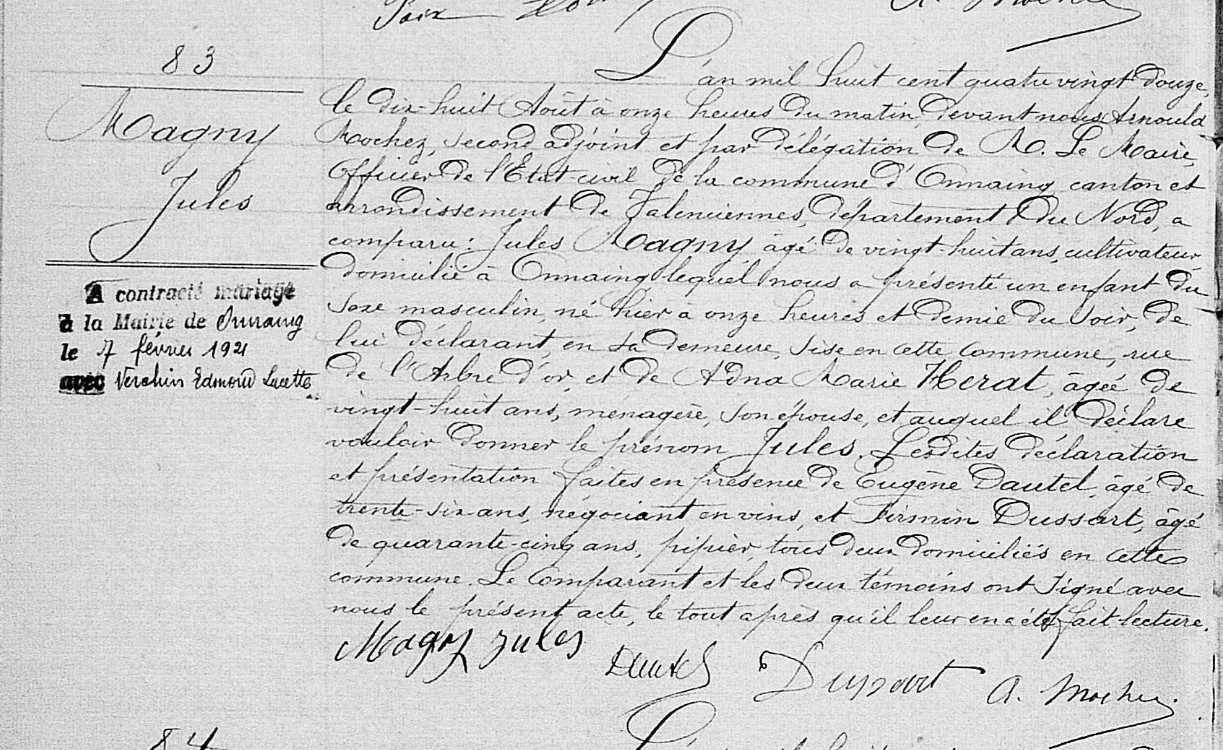 83
Magny
Jules
A contracté mariage
à la Mairie de Onnaing
le 7 février 1921
avec Verchin Edmond Lucette
L'an mil huit cent quatre vingt douze,
le dix-huit Août à onze heures du matin, devant nous Arnould
Mochez, second adjoint et par délégation de M. Le Maire,
Officier de l'Etat civil de la commune d'Onnaing, canton et
arrondissement de Valenciennes, département du Nord, a
comparu : Jules Magny, âgé de vingt-huit ans, cultivateur
domicilié à Onnaing, lequel nous a présenté un enfant du
sexe masculin, né hier à onze heures et demie du soir, de
lui déclarant, en sa demeure, sise en cette commune, rue
de l'Arbre d'or, et de Adna Marie Herat, âgée de
vingt-huit ans, ménagère, son épouse, et auquel il déclare
vouloir donner le prénom Jules. Lesdites déclaration
et présentation faites en présence de Eugène Dautel, âgé de
trente-six ans, négociant en vins, et Firmin Dussart, âgé
de quarante-cinq ans, pipier, tous deux domiciliés en cette
commune. Le Comparant et les deux témoins ont signé avec
nous le présent acte, le tout après qu'il leur en a été fait lecture.
Magny Jules
Dautel
Dussart
A. Mochez
84